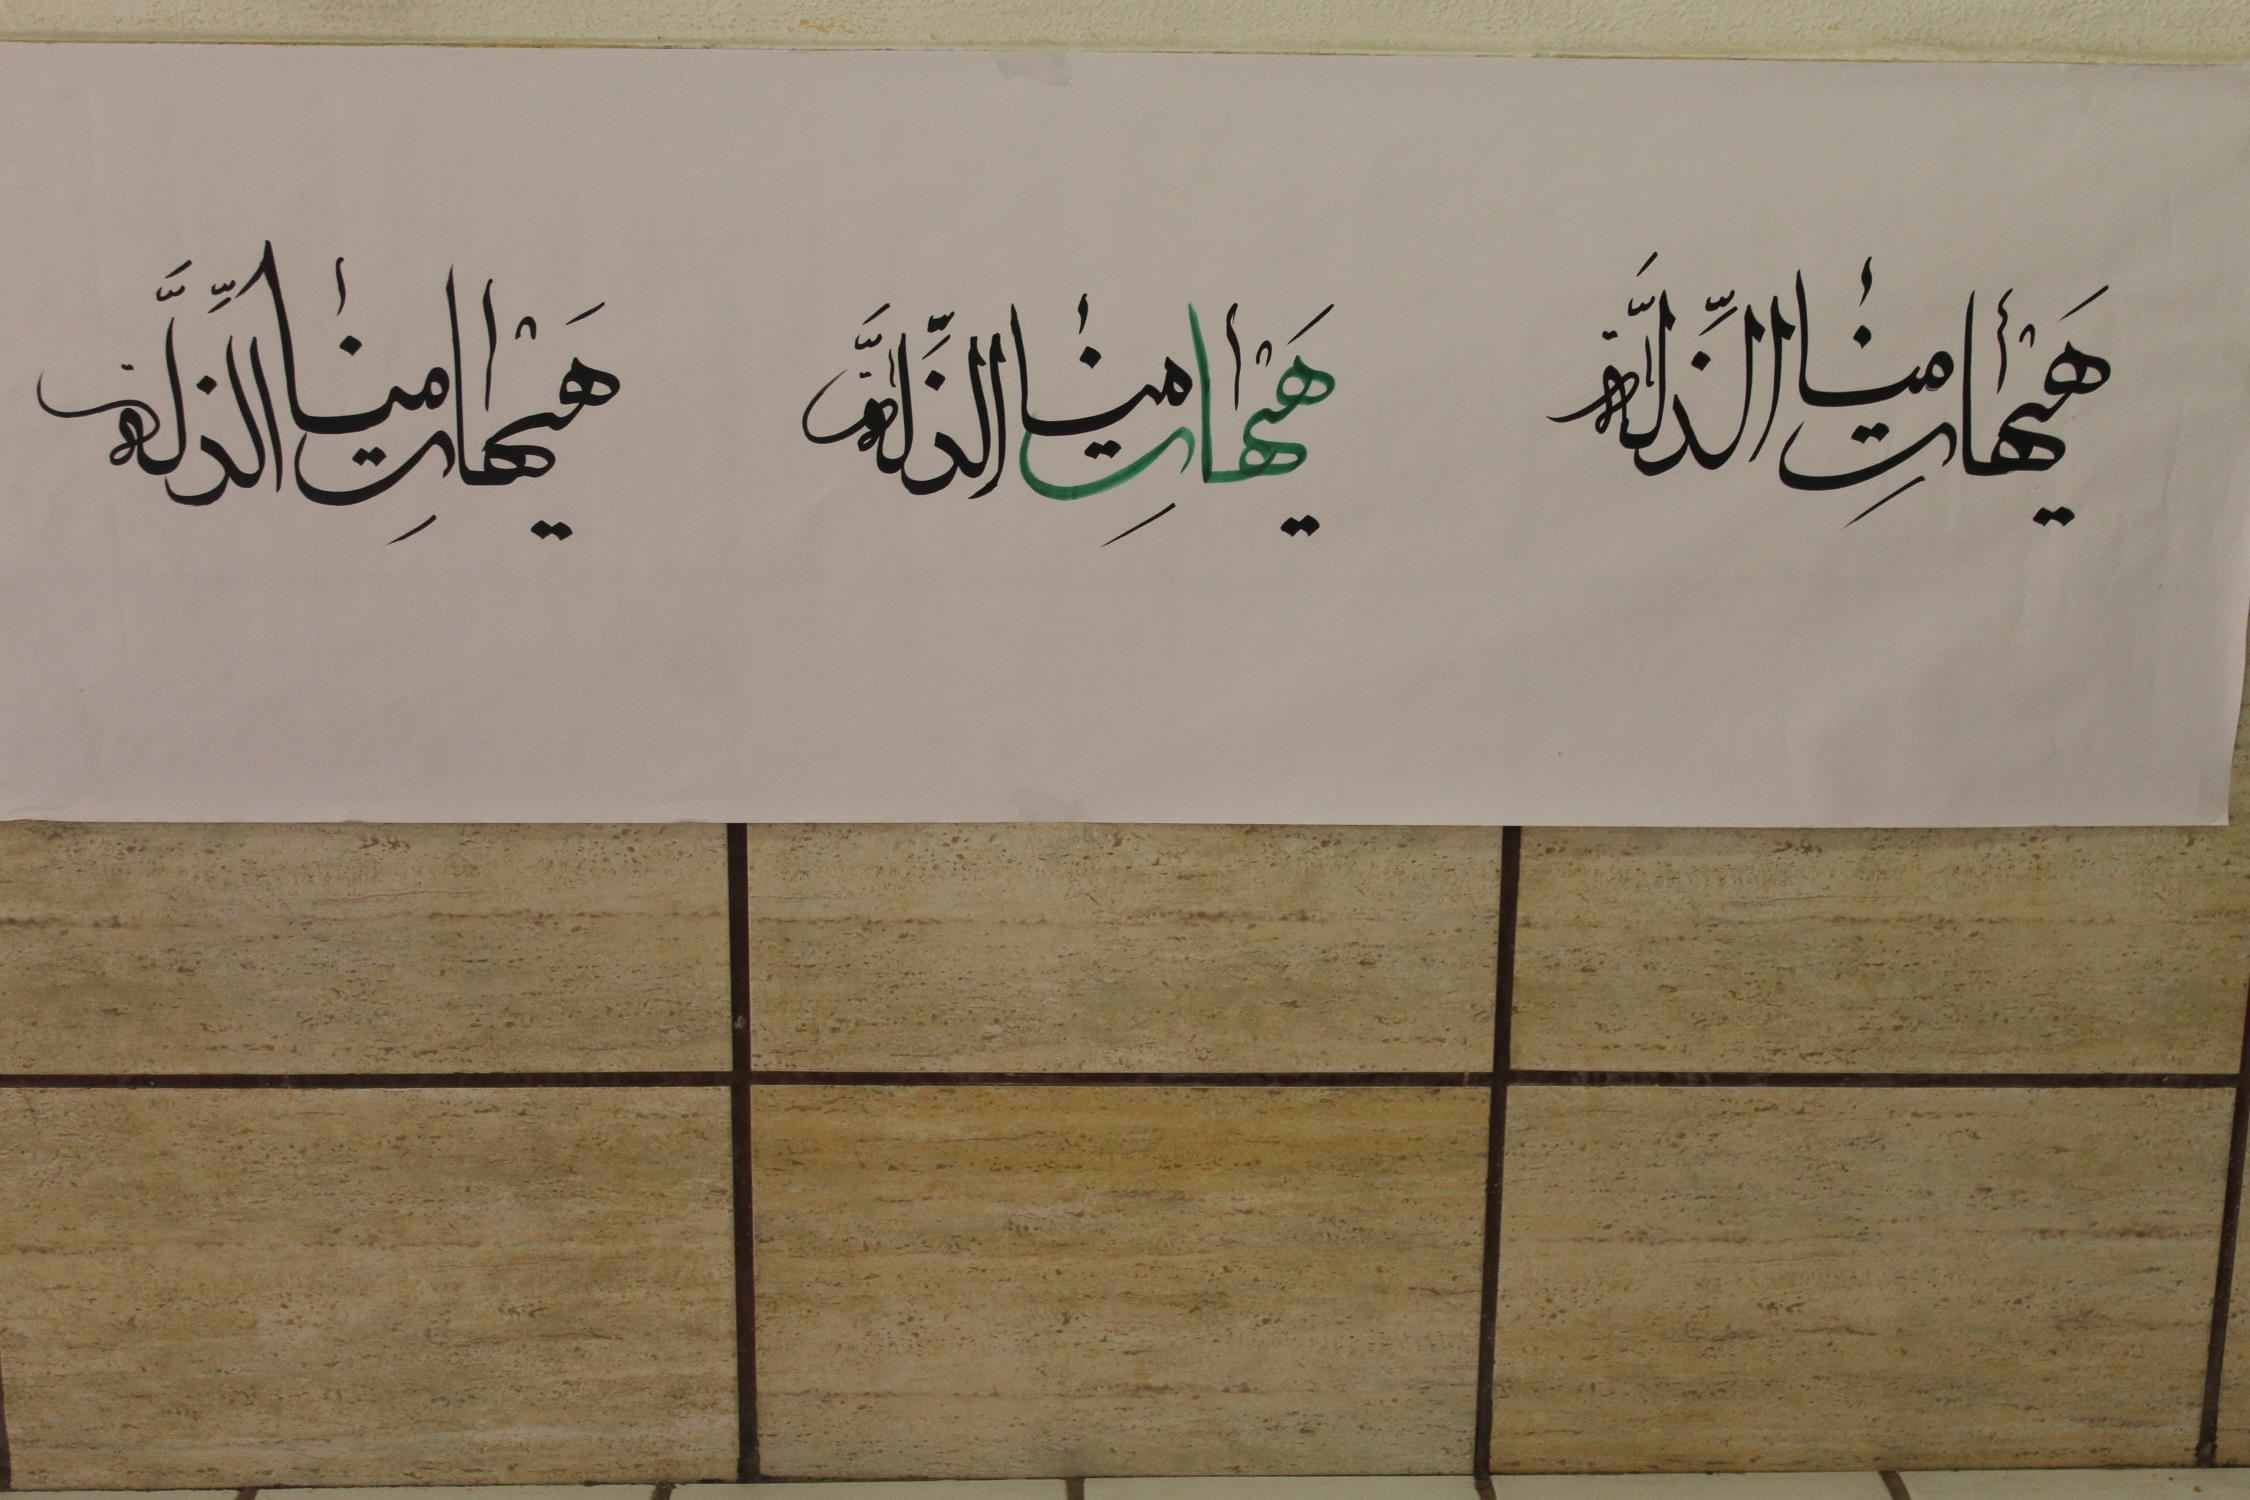 هَيْهَاتِ منا الذِّلَّة
هَيْهَاتِ منا الذِّلَّة
هَيْهَاتِ منا الذِّلَّة